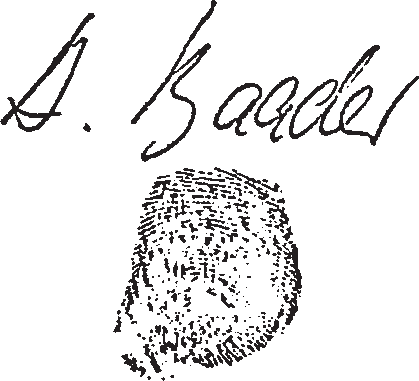 A. Baader